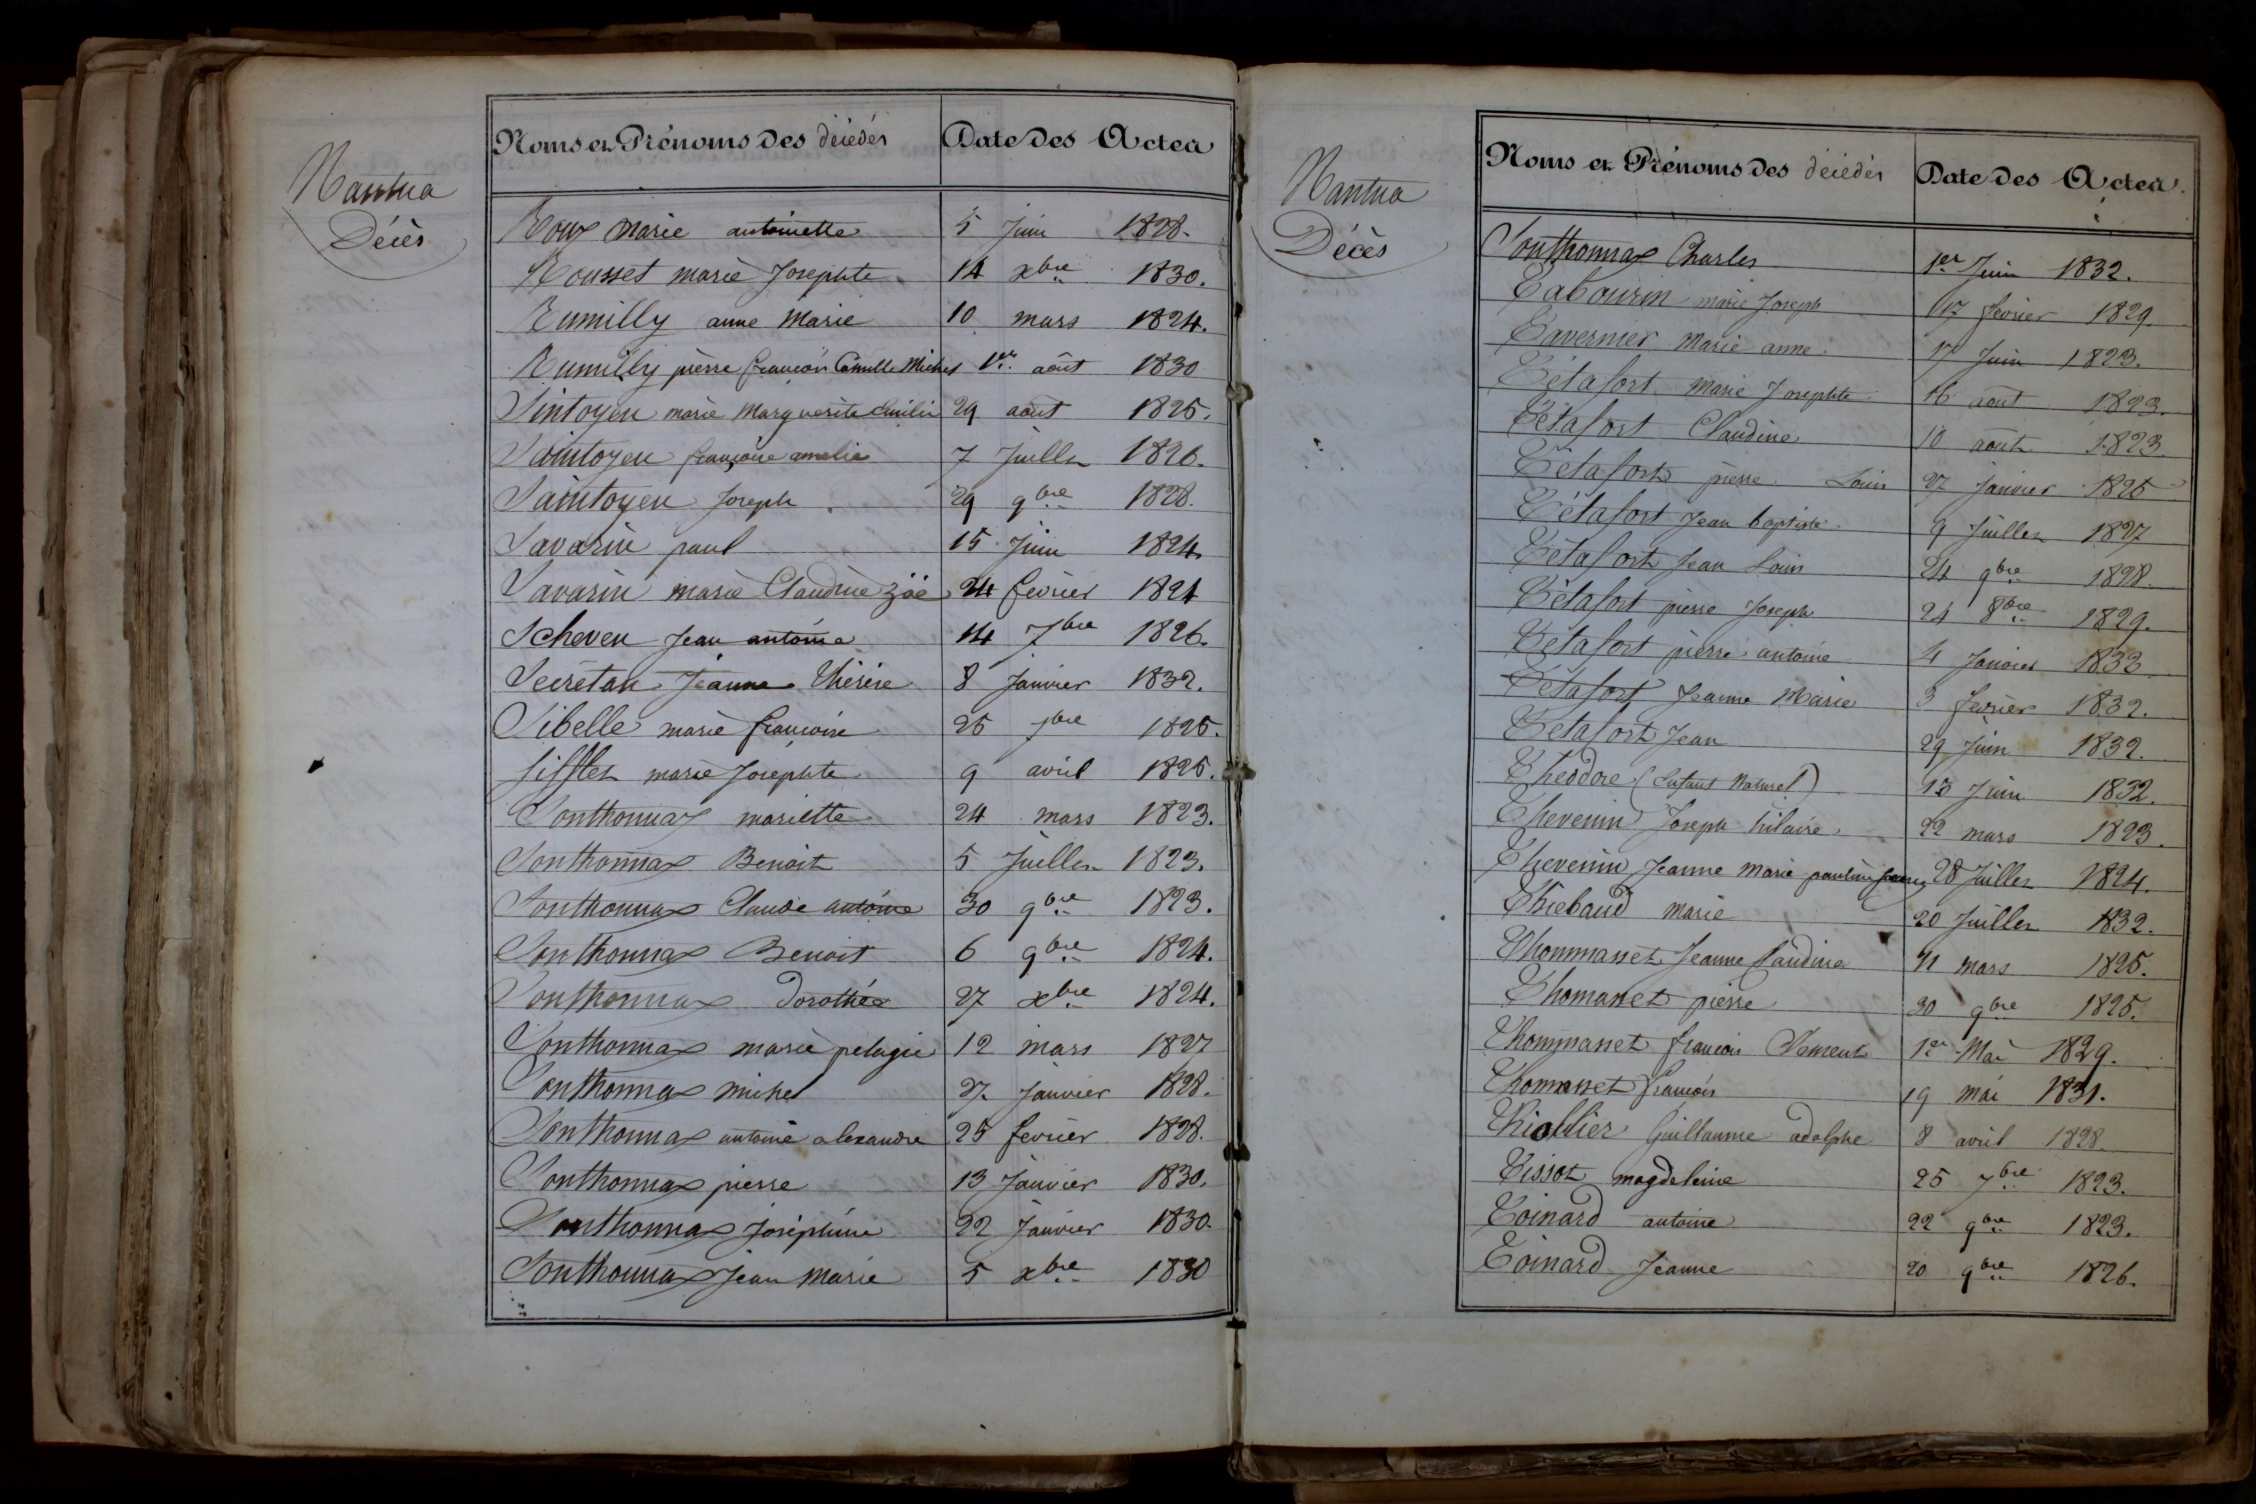 Nantua
Décès
Noms et Prénoms des décédés Date des Actes
Roux Marie antoinette 5 Juin 1828.
Rousset marie Josephte 14 xbre 1830.
Rumilly anne Marie 10 mars 1824.
Rumilly pierre françois Camille Michel 1er août 1830
Sintoyen marie Marguerite Emilie 29 août 1825.
Saintoyen françoise amelie 7 Juillet 1826.
Saintoyen Joseph 29 9bre 1828.
Savarin paul 15 Juin 1824
Savarin marie Claudine zöé 24 fevrier 1824
Scheven Jean antoine 14 7bre 1826.
Secrétan Jeanne Thérèse 8 Janvier 1832.
Sibelle marie françoise 25 7bre 1825.
Sifflet marie Josephte 9 avril 1825.
Sonthonnax mariette 24 mars 1823.
Sonthonnax Benoit 5 Juillet 1823.
Sonthonnax Claude antoine 30 9bre 1823.
Sonthonnax Benoit 6 9bre 1824.
Sonthonnax Dorothée 27 xbre 1824.
Sonthonnax marie pelagie 12 mars 1827
Sonthonnax michel 27 Janvier 1828.
Sonthonnax antoine alexandre 25 fevrier 1828.
Sonthonnax pierre 13 Janvier 1830.
Sonthonnax Joséphine 22 Janvier 1830.
Sonthonnax Jean Marie 5 xbre 1830
Nantua
Décès
Noms et Prénoms des décédés Date des Actes
Sonthonnax Charles 1er Juin 1832.
Tabourin marie Joseph 17 fevrier 1829.
Tavernier Marie anne 17 Juin 1823.
Tétafort Marie Josephte 16 août 1823.
Tétafort Claudine 10 août 1823
Tétafort pierre Louis 27 Janvier 1825
Tétafort Jean baptiste 9 Juillet 1827
Tétafort Jean Louis 24 9bre 1828.
Tétafort pierre Joseph 24 8bre 1829.
Tétafort pierre antoine 4 Janvier 1832
Tétafort Jeanne Marie 3 fevrier 1832.
Tétafort Jean 29 Juin 1832.
Théodore (Enfant Naturel) 13 Juin 1832.
Thevenin Joseph hilaire 22 mars 1823.
Thevenin Jeanne Marie pauline 28 Juillet 1824.
Thiebaud marie 20 Juillet 1832.
Thommasset Jeanne Claudine 11 mars 1825.
Thomasset pierre 30 9bre 1825.
Thommasset françois Clement 1er Mai 1829.
Thomasset françois 19 mai 1831.
Thiollier Guillaume adolphe 8 avril 1828
Tissot magdeleine 25 7bre 1823.
Toinard antoine 22 9bre 1823.
Toinard Jeanne 20 9bre 1826.